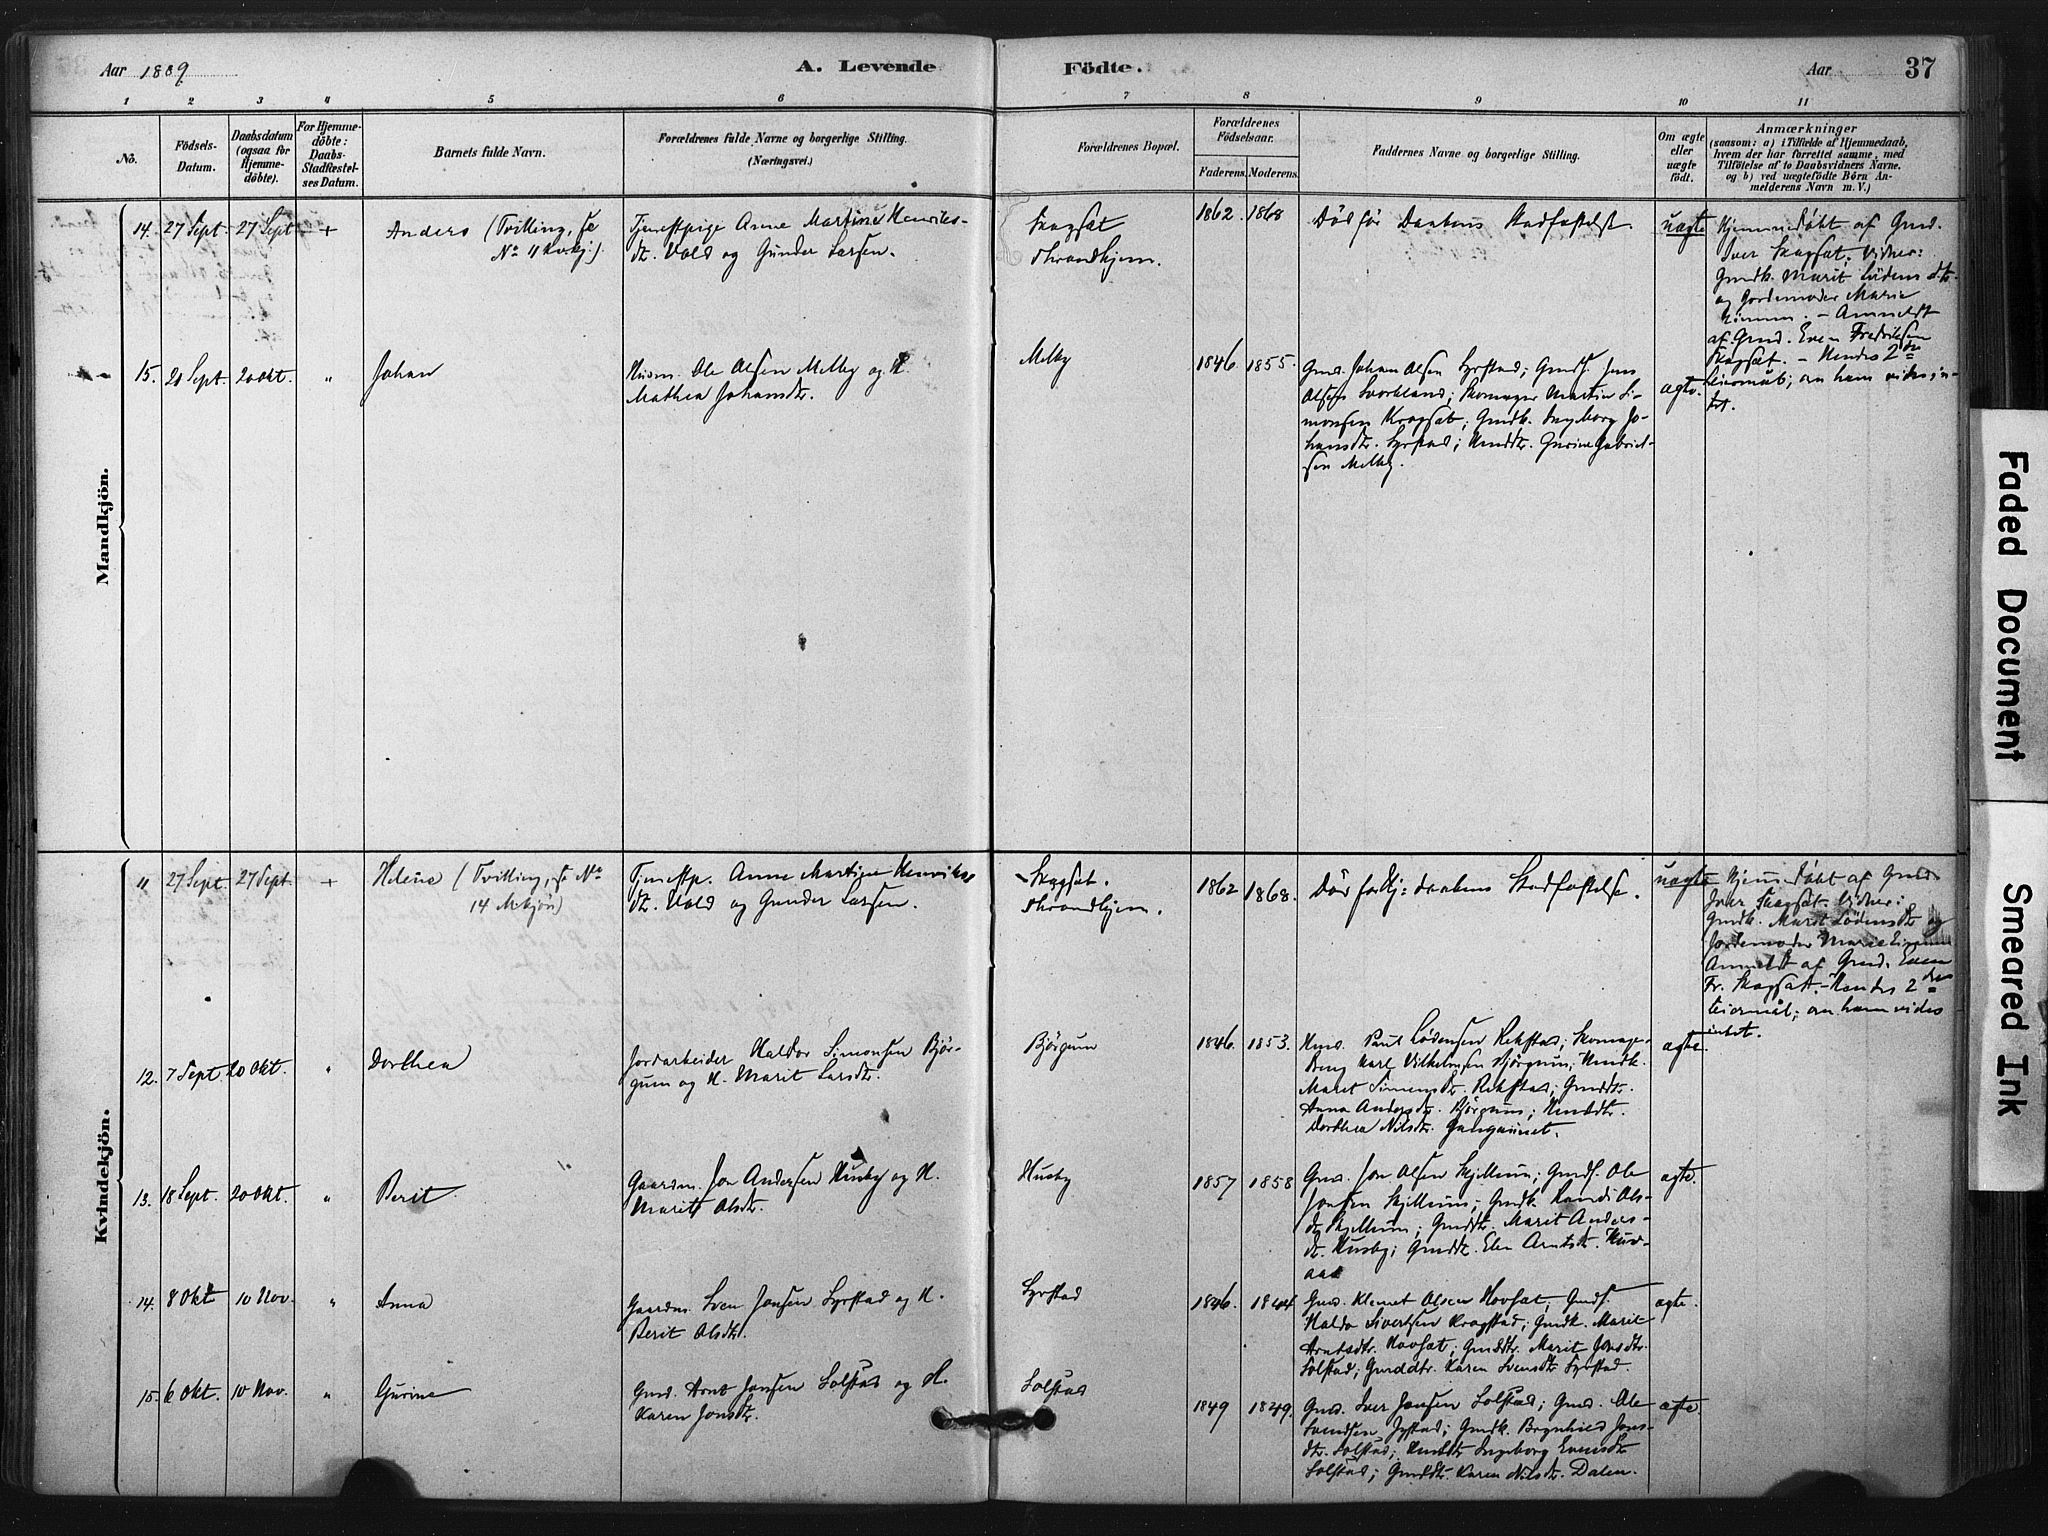 Aar 1889
A. Levende
Födte.
Aar
37
1 2 3 4 5 6 7 8 9 10 11
No.
Födsels-
Datum.
Daabsdatum
(ogsaa for
Hjemme-
döbte).
For Hjemme-
döbte:
Daabs-
Stadfæstel-
ses Datum.
Barnets fulde Navn.
Forældrenes fulde Navne og borgerlige Stilling.
(Næringsvei.)
Forældrenes Bopæl.
Forældrenes
Födselsaar.
Faderens. Moderens.
Faddernes Navne og borgerlige Stilling.
Om ægte
eller
uægte
födt.
Anmærkninger
(saasom: a) i Tilfælde af Hjemmedaab,
hvem der har forrettet samme, med
Tilföielse af to Daabsvidners Navne.
og b) ved uægtefödte Börn An-
melderens Navn m. V.)
Mandkjön.
14. 27 Sept. 27 Sept. + Anders (Tvilling, se
No 11 Kvkj.)
Tjenestpige Anne Martine Henriks-
dt. Vold og Gunder Larsen.
Skagsæt
Throndhjem.
1862. 1868
Död för Daabens Stadfæstelse.
uægte
Hjemmedöbt af Gmd.
Iver Skagsæt. Vidner:
Gmdk. Marit Lödensdt.
og Jordemoder Marie
- Anmeldt
af Gmd. Even Fredriksen
Skagsæt. - Hendes 2det
Leiermål; om ham vides in-
tet.
15. 21 Sept. 20 Okt. " Johan
Husm. Ole Olsen Melby og H.
Mathea Johansdt.
Melby
1846 1855.
Gmd. Johan Olsen Syrstad; Gmds. Jens
Olsen Svorkland; Skomager Martin Si-
monsen Kragsæt; Gmdk. Ingeborg Jo-
hansdt. Syrstad; Hmddt. Gurine Gabriel-
sen Melby.
ægte.
Kvindekjön.
11 27 Sept. 27 Sept. + Helene (Tvilling, se No
14 Mkjön)
Tjenestp. Anne Martine Henriks-
dt. Vold og Gunder Larsen.
Skagsæt.
Throndhjem.
1862 1868.
Död för Hj: daabens Stadfæstelse.
uægte
Hjemmedöbt af Gmd.
Iver Skagsæt. Vidner:
Gmdk. Marit Lödensdt. og
Jordemoder Marie
Anmeldt af Gmd. Even
Fr. Skagsæt. - Hendes 2det
Leiermål; om ham vides
intet.
12. 7 Sept. 20 Okt. " Dorthea
Jordarbeider Haldor Simonsen Björ-
gum og H. Marit Larsdt.
Björgum
1846. 1853.
Hmd. Paul Lödensen Rekstad; Skomager-
Karl Vilhelmsen Björgum; Hmdk.
Maret Simensdt. Rekstad; Gmddt.
Anna Andersdt. Björgum; Hmddt.
Dorthea Nilsdt.
ægte.
13. 18 Sept. 20 Okt. " Berit
Gaardm. Jon Andersen Husby og H.
Marit Olsdt.
Husby
1857 1858
Gmd. Jon Olsen Skjellum; Gmds. Ole
Jonsen Skjellum; Gmdk. Randi Ols-
dt. Skjellum; Gmddt. Marit Anders-
dt. Husby; Gmddt. Elen Arntsdt. Huv-
aas
ægte.
14. 8 Okt 10 Nov. " Anna
Gaardm. Sven Jonsen Syrstad og H.
Berit Olsdt.
Syrstad
1846. 1844
Gmd. Klemet Olsen Hovsæt; Gmds.
Haldo Sivertsen Kragstad; Gmdk. Marit
Arntsdtr. Hovsæt; Gmddt. Marit Jonsdtr.
Solstad; Gmddtr. Karen Svensdt. Syrstad.
ægte.
15. 6 Okt. 10 Nov. " Gurine
Gmd. Arnt Jonsen Solstad og H.
Karen Jonsdt.
Solstad
1849 1849.
Gmd. Iver Jonsen Solstad; Gmd. Ole
Svendsen Syrstad; Gmdk. Brynhild Jons-
dtr. Solstad; Hmddt. Ingeborg Evensdt.
Solstad; Gmddt. Karen Nilsdt. Dalen.
ægte.
Faded Document
Smeared Ink